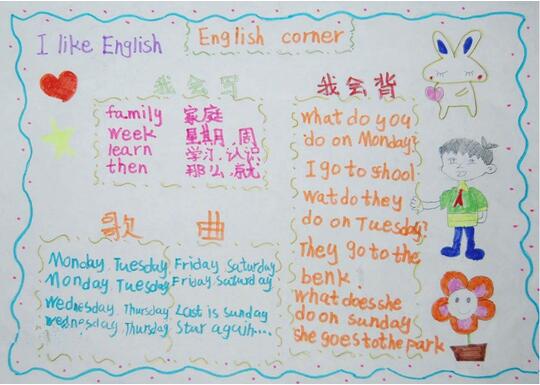 I like English
English corner
我会写
family 家庭
week 星期,周
learn 学习,认识
then 那么,就
歌 曲
Monday, Tuesday, Friday, Saturday
Monday, Tuesday, Friday, Saturday
Wednesday, Thursday, Last is sunday
Wednesday, Thursday, Star again....
我会背
what do you
do on Monday?
I go to school
wat do they
do on Tuesday?
They go to the
benk.
what does she
do on sunday
she goes to the park